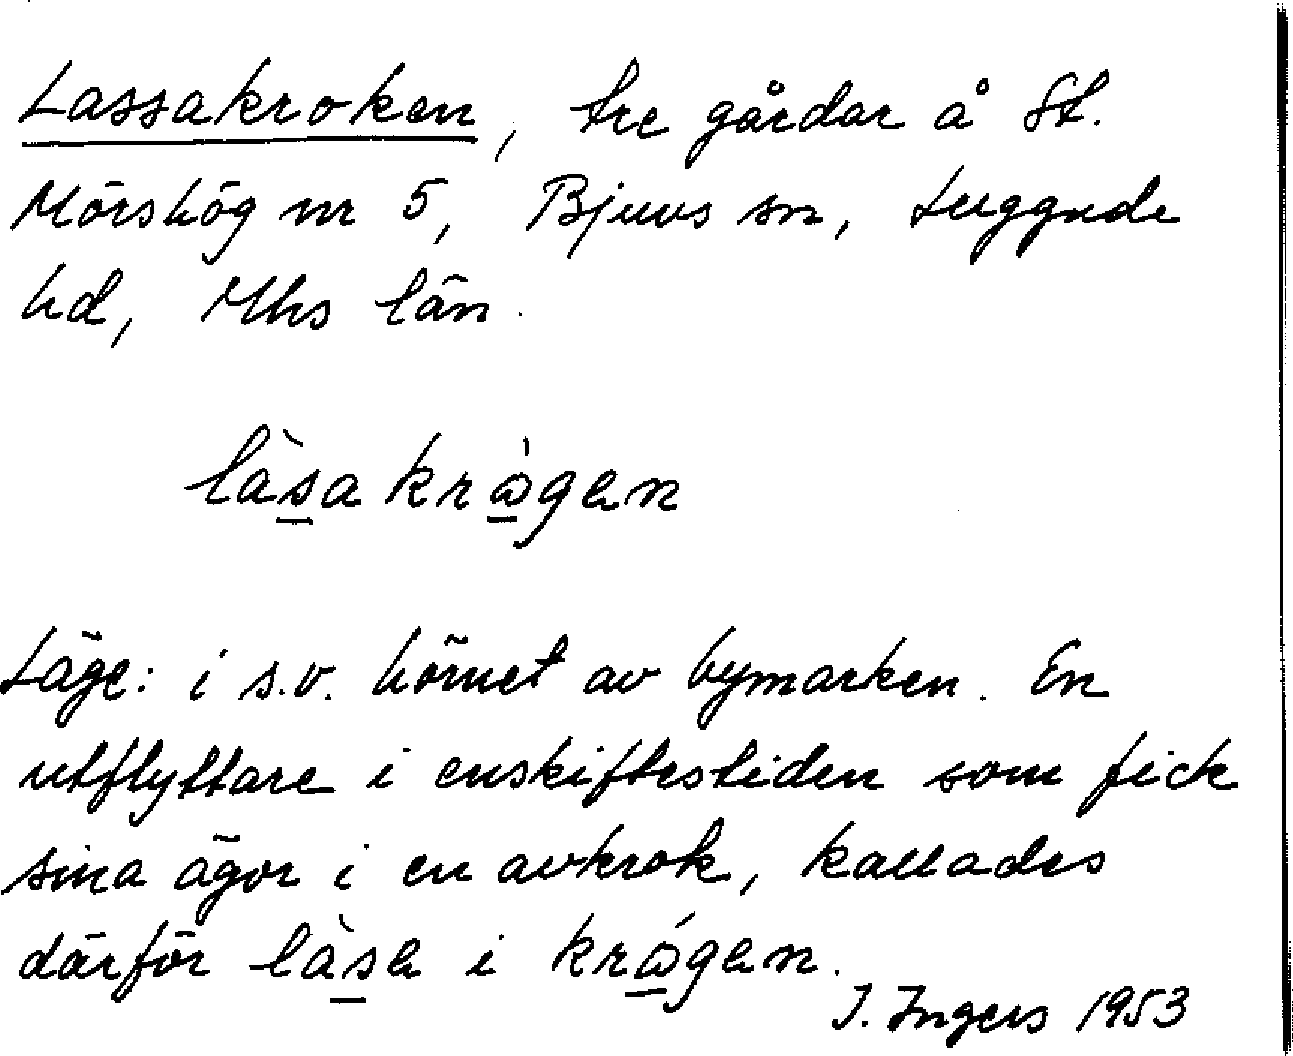 Lassakroken, tre gårdar å St.
Mörshög nr 5, Bjuvs sn, Luggude
hd, Mhs län.
làs̲akrɷ̲̀gen
Läge: i s.v. hörnet av bymarken. En
utflyttare i enskiftestiden som fick
sina ägor i en avkrok, kallades
därför làs̲e i krɷ̲́gen.
I. Ingers 1953